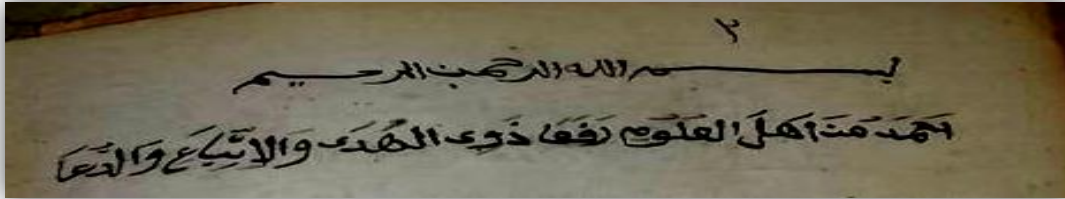 ٣
بسم الله الرحمن الرحيم
احمد من اهل العلوم رفعا ذوي الهدى والاتباع والدعا